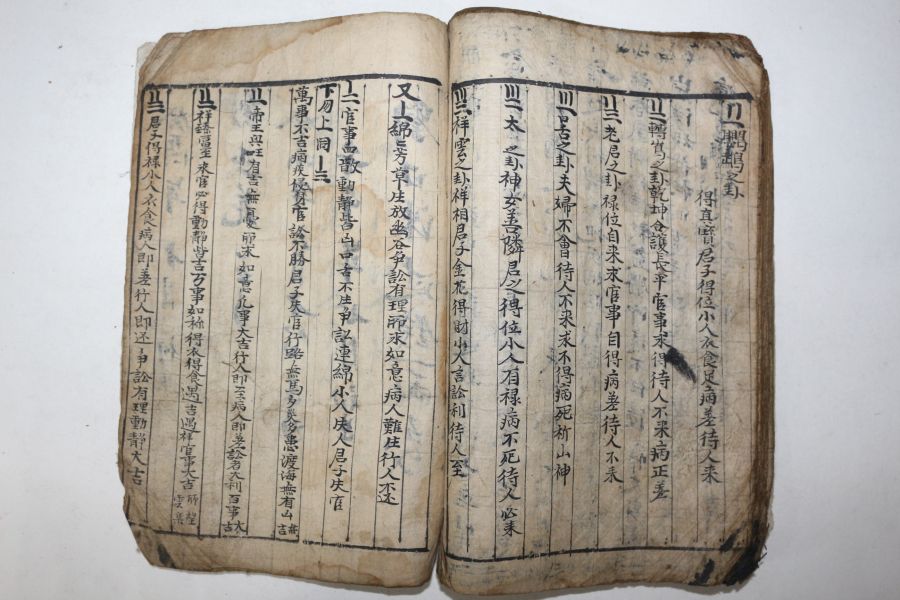 之卦
得真寶君子得位小人衣食足病差待人来
轉鸎之卦乾坤食護長平官事求得待人不来病正差
老君之卦禄位自来求官事自得病差待人不来
舌之卦夫婦不會待人不来求不得病死祈山神
太之卦神女善隣君之得位小人有禄病不死待人必来
祥雲之卦祥相君子金花得財小人言訟利待人至
又 綿芳草生放幽谷爭訟有理所求如意病人難生行人不还
官事四散動靜皆凶口舌不生爭訟連綿小人失人君子失官
下勿上同
萬事不吉病疾侵身官訟不勝君子失官行路無馬多災多患渡海無有山 吉
帝王興旺有吉無憂所求如意凡事大吉行人即至病人即差訟者大利百事 大吉
祥臻當至来官必得動靜皆吉万事如称得衣得食遇吉遇祥官事大吉 所望
君子得禄小人衣食病人即差行人即还爭訟有理動靜大吉